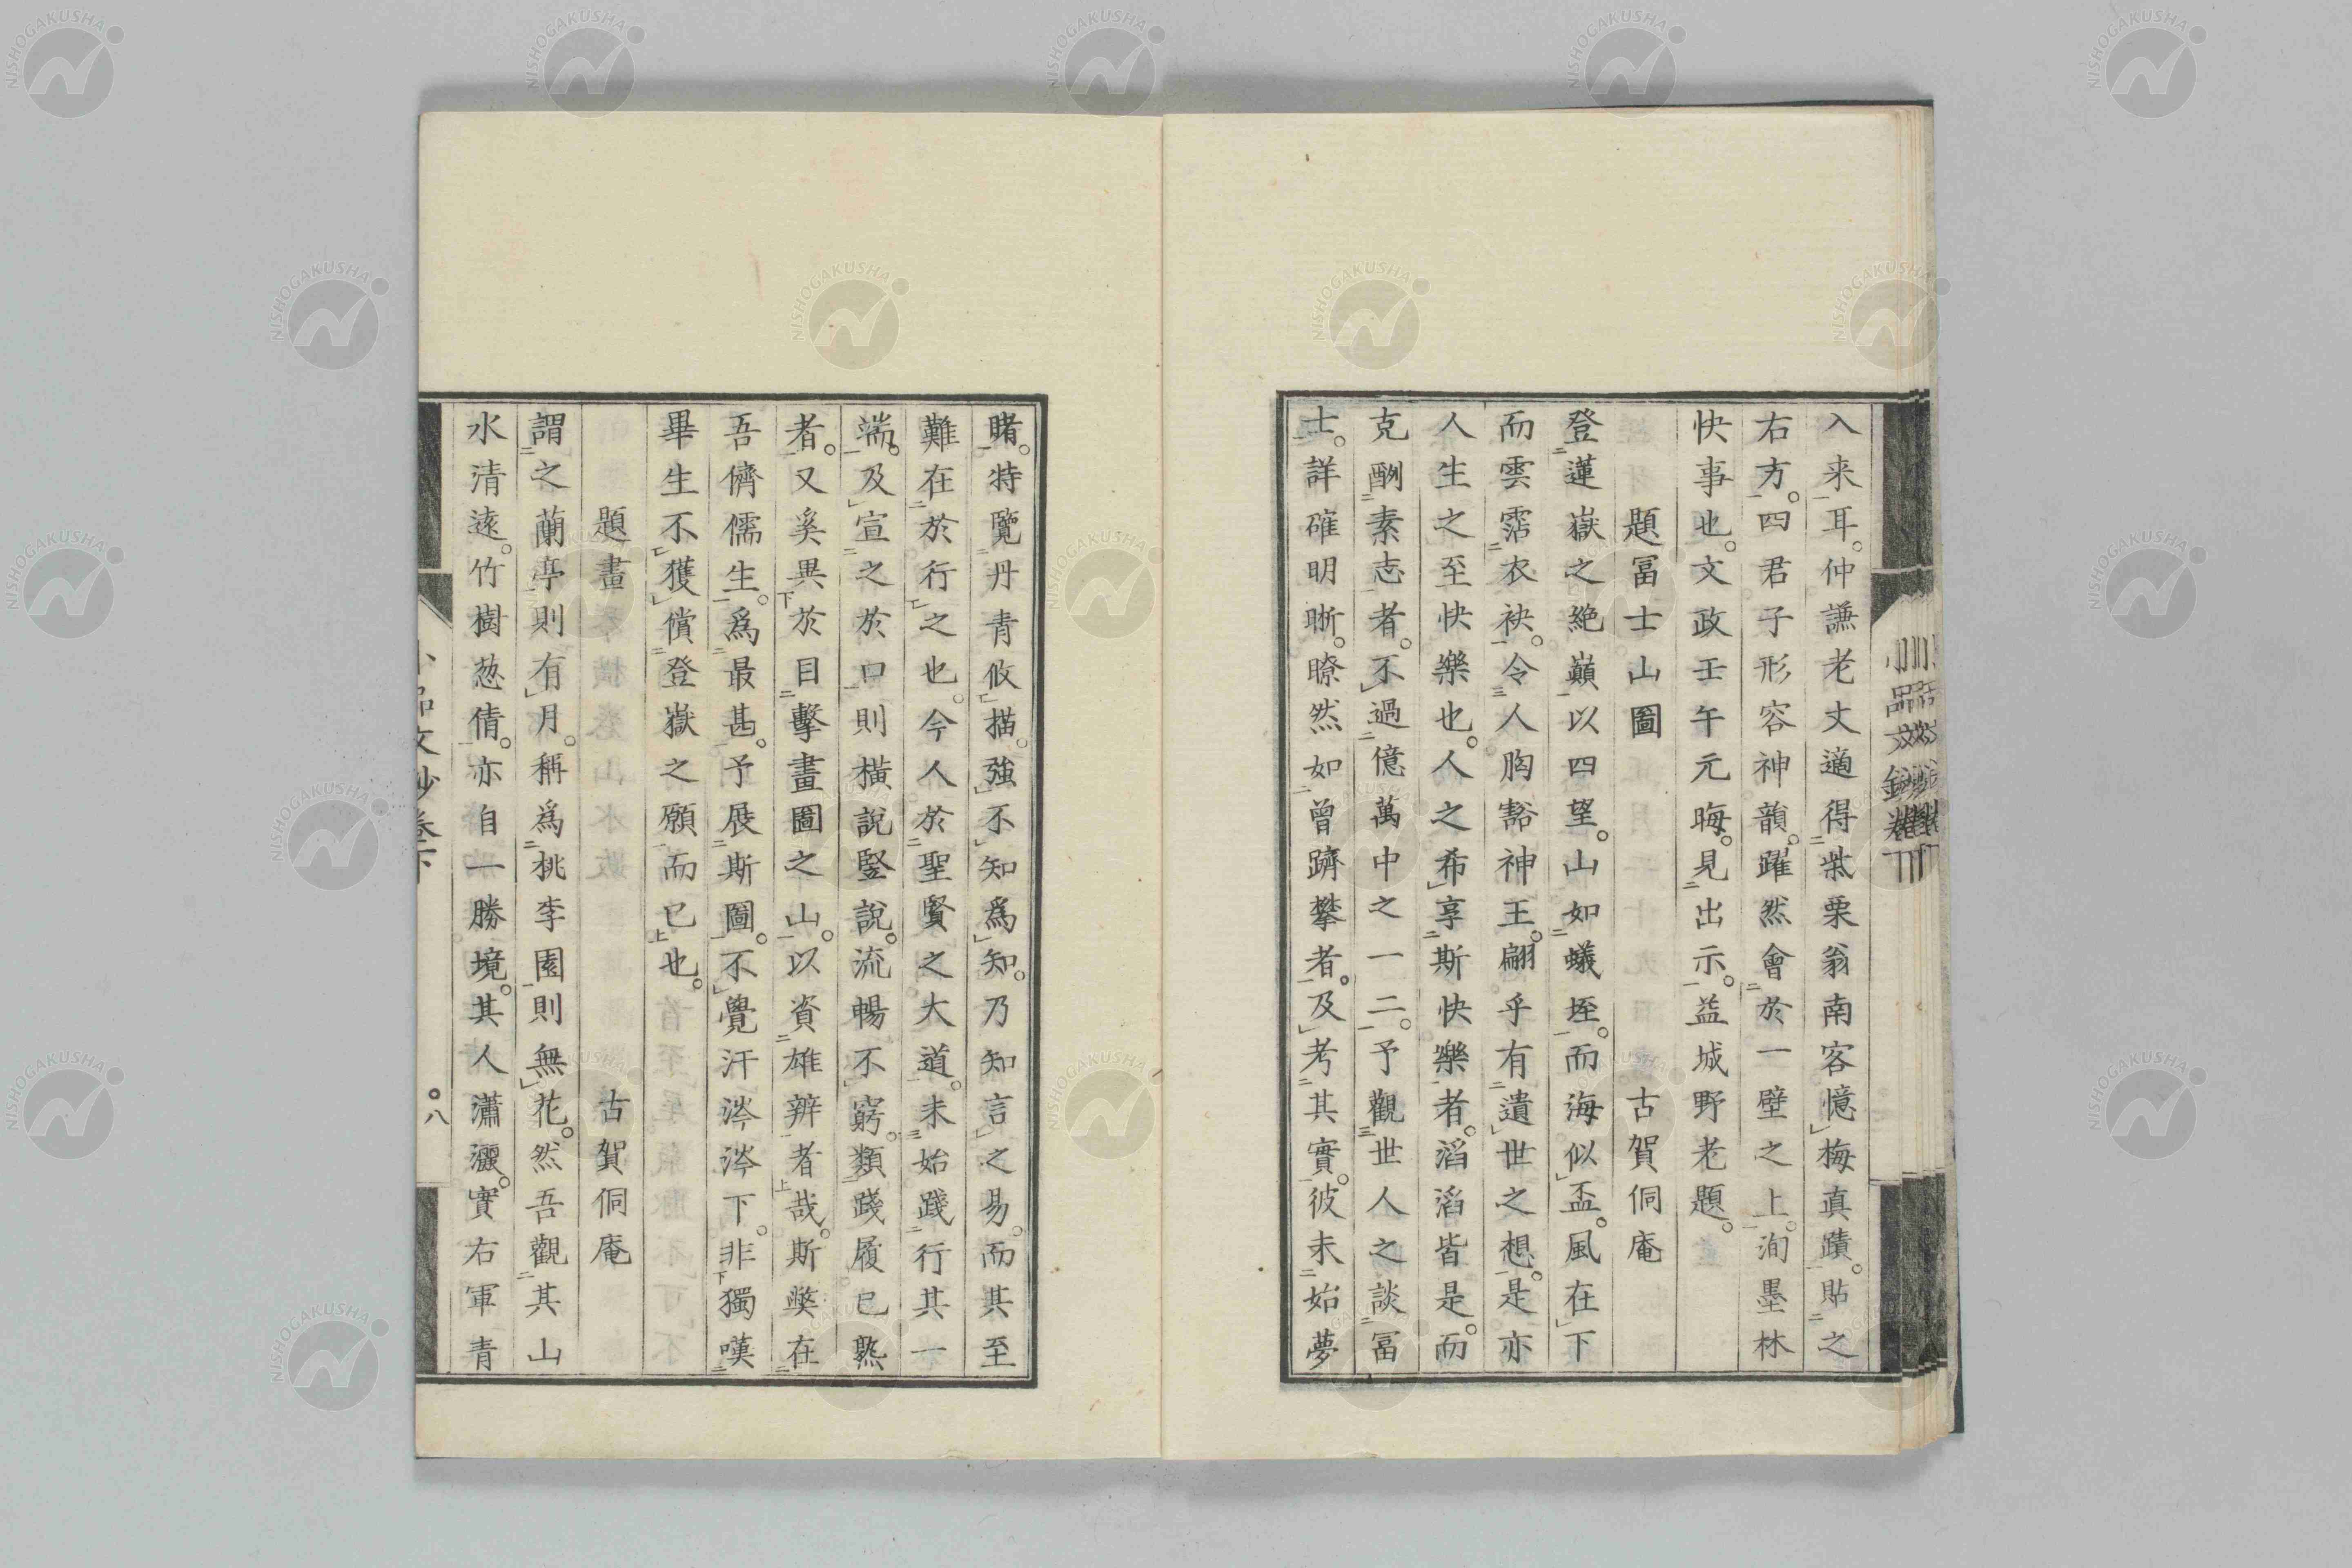 入来耳。仲謙老丈適得柴栗翁南客憶梅真蹟。貼之
右方。四君子形容神韻。躍然會於一壁之上。洵墨林
快事也。文政壬午元晦。見出示。益城野老題。
題冨士山圖　古賀侗庵
登蓮嶽之絶巓以四望。山如蟻垤。而海似盃。風在下
而雲霑衣袂。令人胸豁神王。翩乎有遺世之想。是亦
人生之至快樂也。人之希享斯快樂者。滔滔皆是。而
克酬素志者。不過億萬中之一二。予觀世人之談冨
士。詳確明晰。瞭然如曾躋攀者。及考其實。彼未始夢
睹。特覽丹青攸描。強不知爲知。乃知言之易。而其至
難在於行之也。今人於聖賢之大道。未始踐行其一
端。及宣之於口則橫說竪說。流暢不窮。類踐履已熟
者。又奚異於目擊畫圖之山。以資雄辨者哉。斯獘在
吾儕儒生。爲最甚。予展斯圖。不覺汗涔涔下。非獨嘆
畢生不獲償登嶽之願而已也。
題畫　古賀侗庵
謂之蘭亭則有月。稱爲桃李園則無花。然吾觀其山
水清遠。竹樹葱倩。亦自一勝境。其人瀟灑。實右軍青
小品文鈔卷下
八
NISHOGAKUSHA